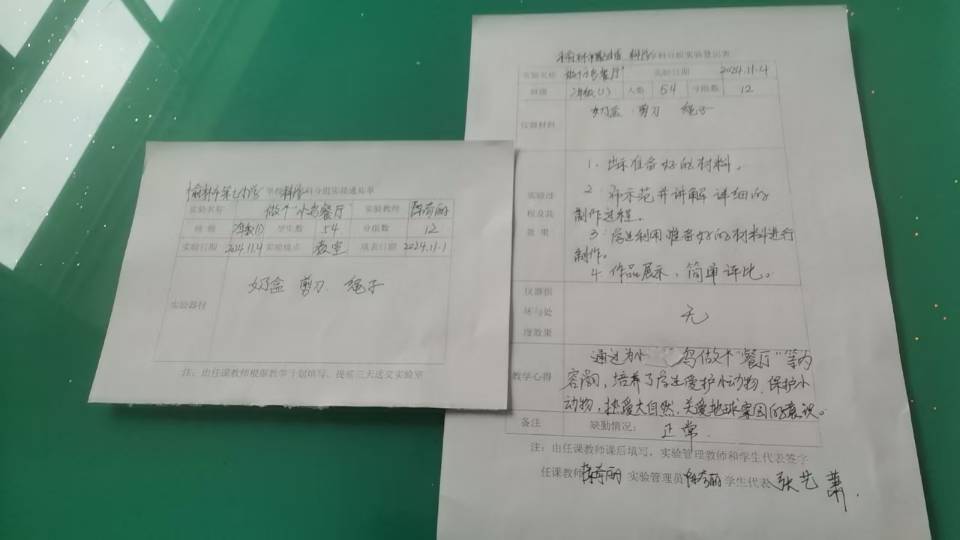 榆林市第七小学 学校科学科分组实验通知单
实验名称 做个"小鸟餐厅" 实验教师
班级 学生数 54 分组数 12
实验日期 2024.11.4 实验地点 教室 填表日期 2024.11.1
实验器材 奶盒 剪刀 绳子
注:由任课教师根据教学计划填写,提前三天送交实验室
科学科分组实验登记表
实验名称 做个"小鸟餐厅" 实验日期 2024.11.4
班级 人数 54 分组数 12
仪器材料 奶盒 剪刀 绳子
实验过
程及其
效果
1. 出示准备好的材料。
2. 师示范并讲解详细的
制作过程。
3. 学生利用准备好的材料进行
制作。
4. 作品展示,简单评比。
仪器损
坏与处
理效果
无
教学心得
通过为小 鸟做个"餐厅"等内
容,培养了学生爱护小动物,保护小
动物,热爱大自然,关爱地球家园的意识。
备注 缺勤情况: 正常.
注:由任课教师课后填写,实验管理教师和学生代表签字
任课教师 实验管理员 学生代表 张艺萧.